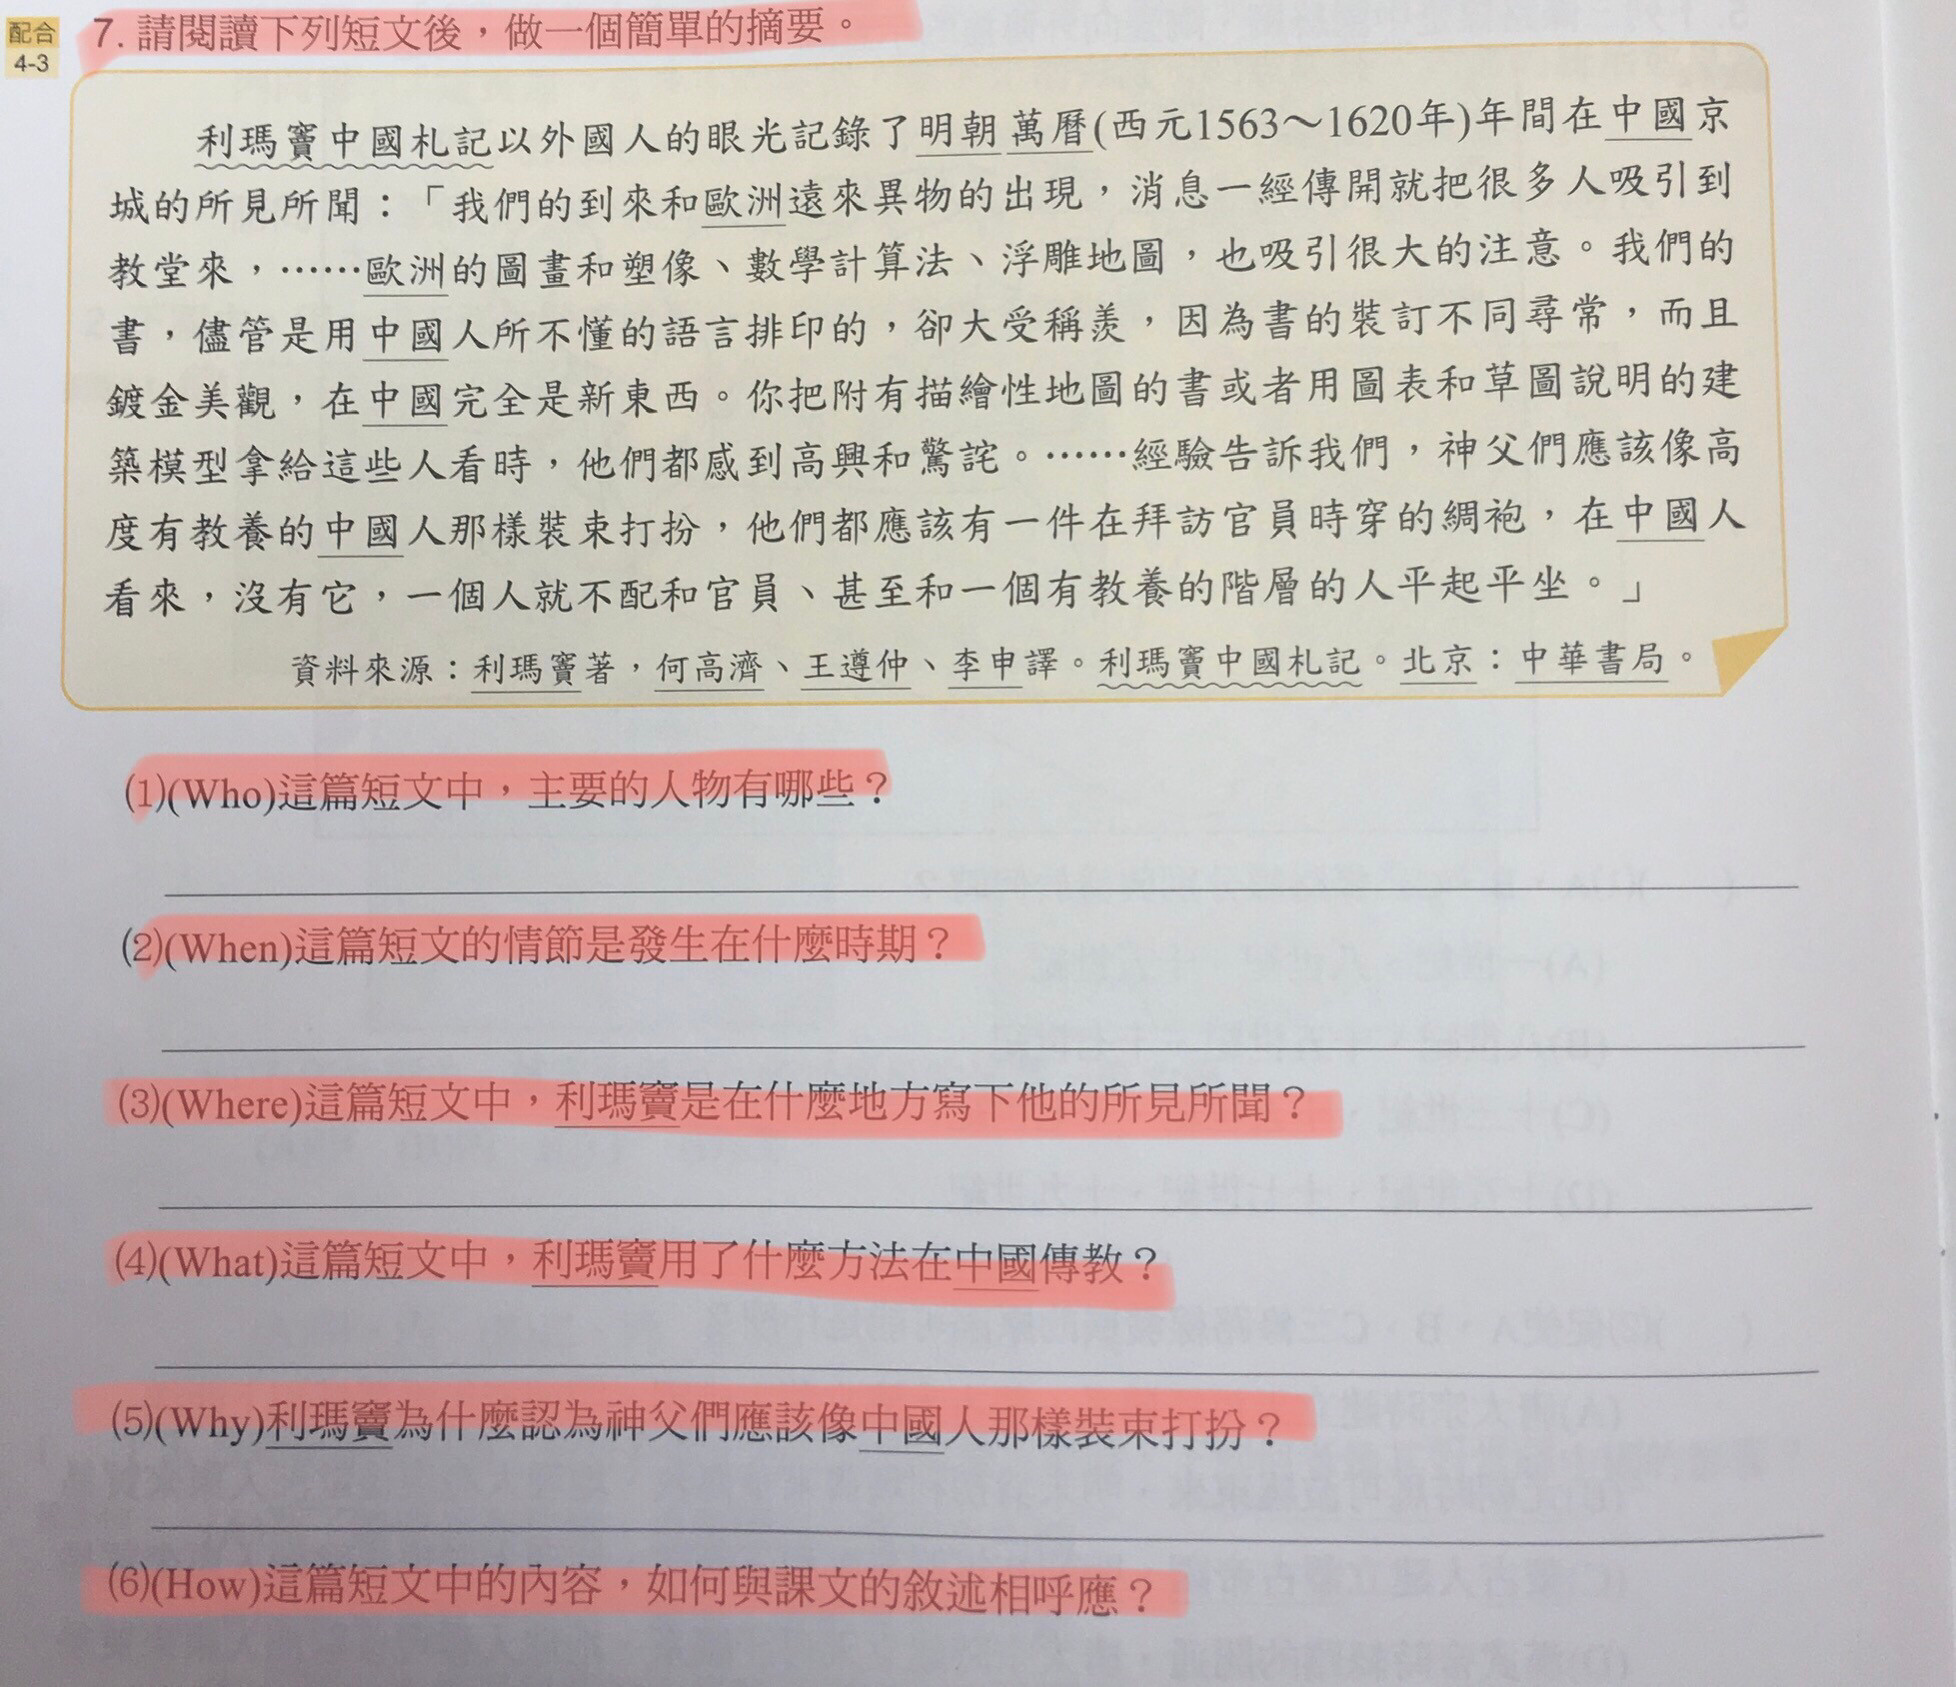 配合
4-3
7. 請閱讀下列短文後，做一個簡單的摘要。
利瑪竇中國札記以外國人的眼光記錄了明朝萬曆(西元1563～1620年)年間在中國京
城的所見所聞：「我們的到來和歐洲遠來異物的出現，消息一經傳開就把很多人吸引到
教堂來，……歐洲的圖畫和塑像、數學計算法、浮雕地圖，也吸引很大的注意。我們的
書，儘管是用中國人所不懂的語言排印的，卻大受稱羨，因為書的裝訂不同尋常，而且
鍍金美觀，在中國完全是新東西。你把附有描繪性地圖的書或者用圖表和草圖說明的建
築模型拿給這些人看時，他們都感到高興和驚詫。……經驗告訴我們，神父們應該像高
度有教養的中國人那樣裝束打扮，他們都應該有一件在拜訪官員時穿的綢袍，在中國人
看來，沒有它，一個人就不配和官員、甚至和一個有教養的階層的人平起平坐。」
資料來源：利瑪竇著，何高濟、王遵仲、李申譯。利瑪竇中國札記。北京：中華書局。
(1)(Who)這篇短文中，主要的人物有哪些？
(2)(When)這篇短文的情節是發生在什麼時期？
(3)(Where)這篇短文中，利瑪竇是在什麼地方寫下他的所見所聞？
(4)(What)這篇短文中，利瑪竇用了什麼方法在中國傳教？
(5)(Why)利瑪竇為什麼認為神父們應該像中國人那樣裝束打扮？
(6)(How)這篇短文中的內容，如何與課文的敘述相呼應？